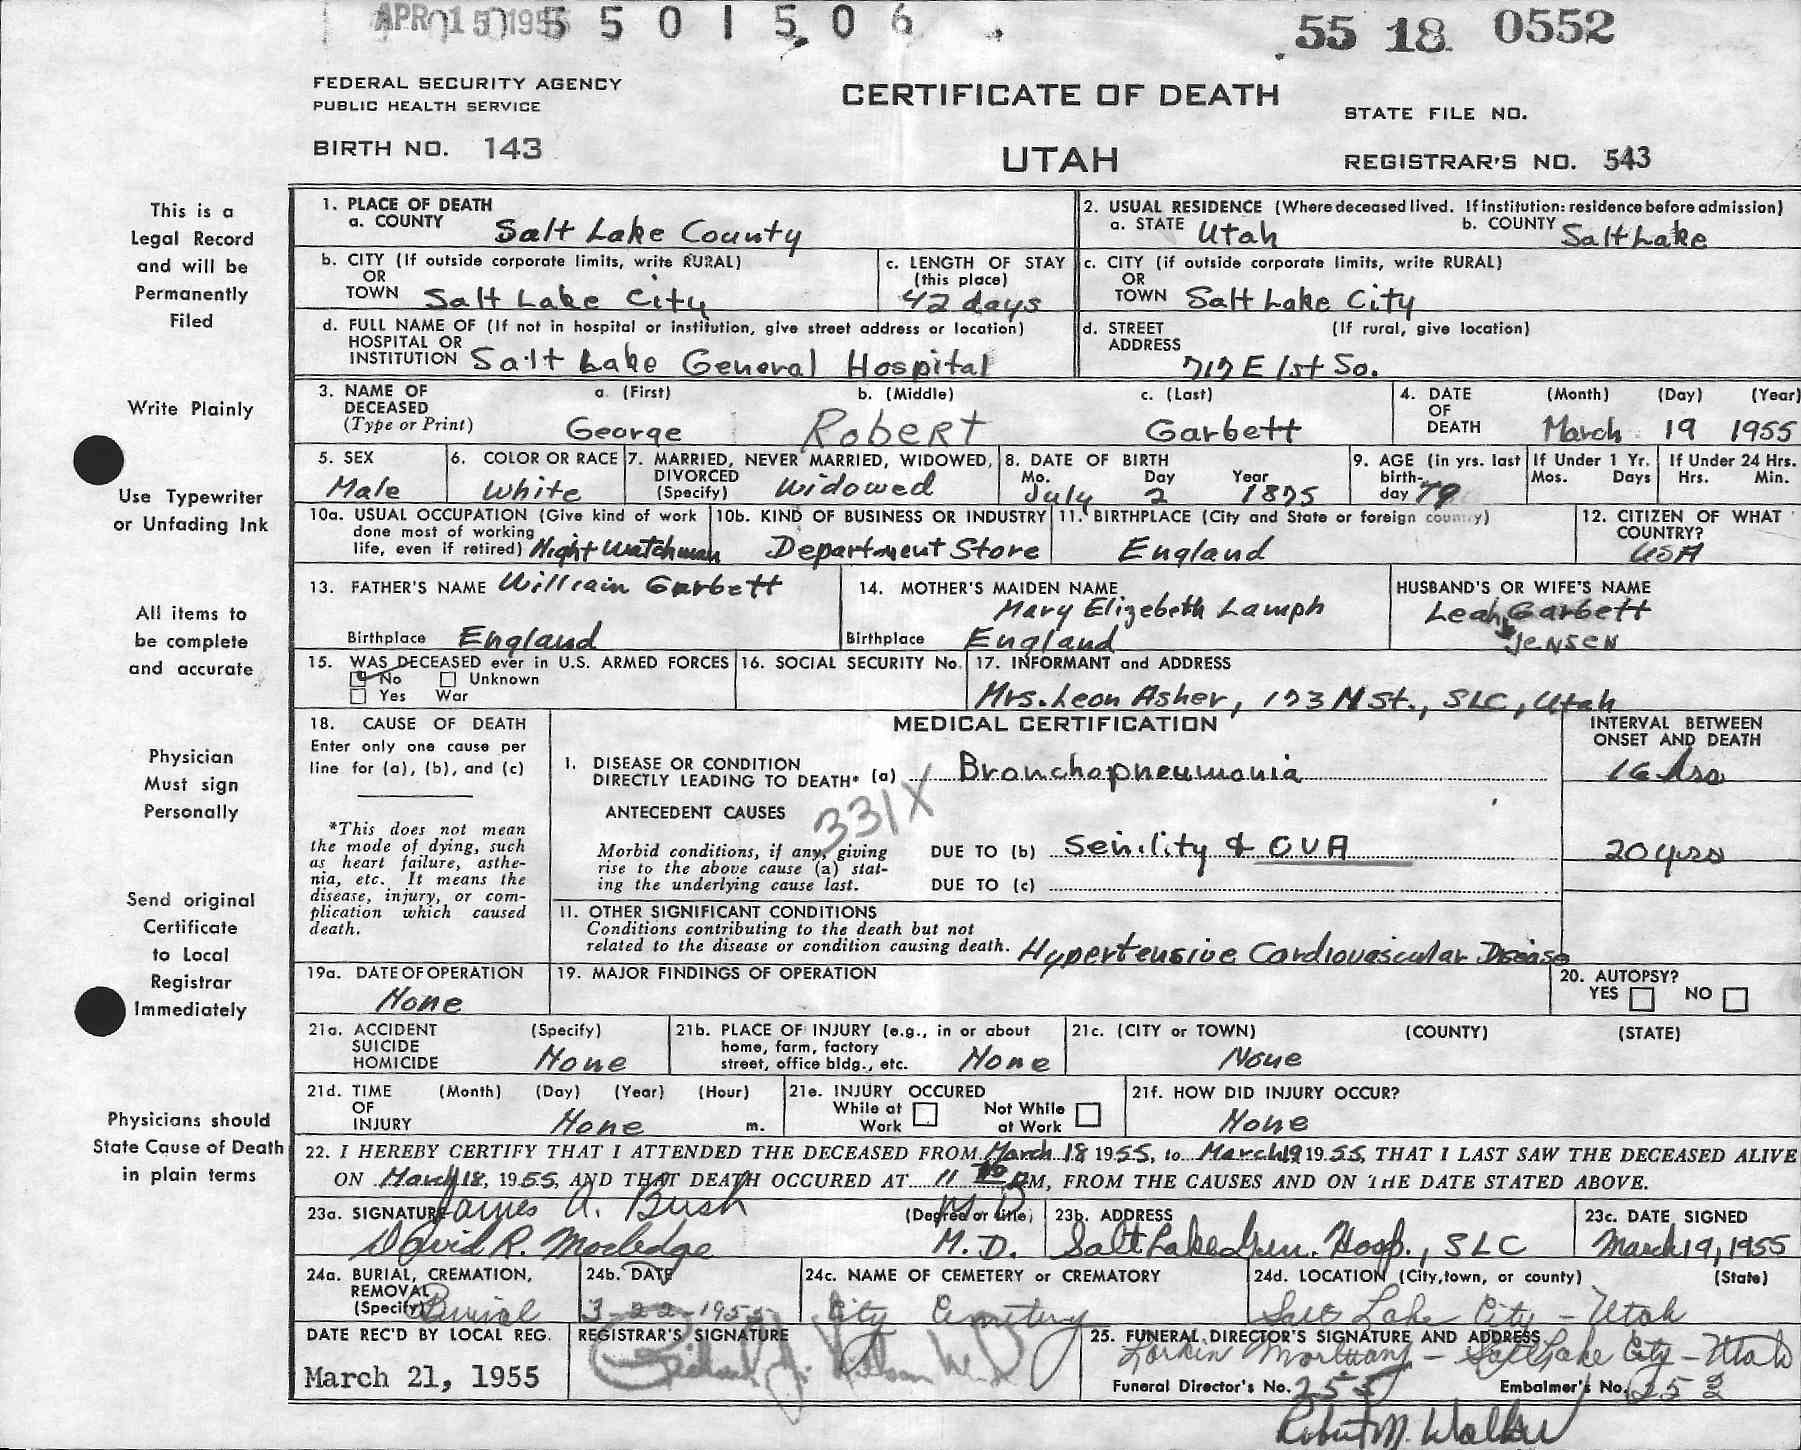 APR 15 1955 5 5 0 1 5 0 6
55 18 0552
FEDERAL SECURITY AGENCY
PUBLIC HEALTH SERVICE
BIRTH NO. 143
CERTIFICATE OF DEATH
UTAH
STATE FILE NO.
REGISTRAR'S NO. 543
This is a
Legal Record
and will be
Permanently
Filed
Write Plainly
Use Typewriter
or Unfading Ink
All items to
be complete
and accurate
Physician
Must sign
Personally
Send original
Certificate
to Local
Registrar
Immediately
Physicians should
State Cause of Death
in plain terms
1. PLACE OF DEATH
a. COUNTY Salt Lake County
2. USUAL RESIDENCE (Where deceased lived. If institution: residence before admission)
a. STATE Utah b. COUNTY Salt Lake
b. CITY (If outside corporate limits, write RURAL)
OR
TOWN Salt Lake City
c. LENGTH OF STAY
(this place)
42 days
c. CITY (if outside corporate limits, write RURAL)
OR
TOWN Salt Lake City
d. FULL NAME OF (If not in hospital or institution, give street address or location)
HOSPITAL OR
INSTITUTION Salt Lake General Hospital
d. STREET (If rural, give location)
ADDRESS
717 E 1st So.
3. NAME OF
DECEASED
(Type or Print)
a. (First) b. (Middle) c. (Last)
George Robert Garbett
4. DATE (Month) (Day) (Year)
OF
DEATH March 19 1955
5. SEX
Male
6. COLOR OR RACE
White
7. MARRIED, NEVER MARRIED, WIDOWED,
DIVORCED
(Specify) Widowed
8. DATE OF BIRTH
Mo. Day Year
July 2 1875
9. AGE (in yrs. last
birth-
day 79
If Under 1 Yr.
Mos. Days
If Under 24 Hrs.
Hrs. Min.
10a. USUAL OCCUPATION (Give kind of work
done most of working
life, even if retired) Night Watchman
10b. KIND OF BUSINESS OR INDUSTRY
Department Store
11. BIRTHPLACE (City and State or foreign country)
England
12. CITIZEN OF WHAT
COUNTRY?
USA
13. FATHER'S NAME William Garbett
Birthplace England
14. MOTHER'S MAIDEN NAME
Mary Elizebeth Lamph
Birthplace England
HUSBAND'S OR WIFE'S NAME
Leah Garbett
JENSEN
15. WAS DECEASED ever in U.S. ARMED FORCES
No Unknown
Yes War
16. SOCIAL SECURITY No.
17. INFORMANT and ADDRESS
Mrs. Leon Asher, 173 N St., SLC, Utah
18. CAUSE OF DEATH
Enter only one cause per
line for (a), (b), and (c)
*This does not mean
the mode of dying, such
as heart failure, asthe-
nia, etc. It means the
disease, injury, or com-
plication which caused
death.
MEDICAL CERTIFICATION
INTERVAL BETWEEN
ONSET AND DEATH
I. DISEASE OR CONDITION
DIRECTLY LEADING TO DEATH* (a) Bronchopneumonia
16 hrs
ANTECEDENT CAUSES
331X
Morbid conditions, if any, giving
rise to the above cause (a) stat-
ing the underlying cause last.
DUE TO (b) Senility & CVA
20 yrs
DUE TO (c)
II. OTHER SIGNIFICANT CONDITIONS
Conditions contributing to the death but not
related to the disease or condition causing death. Hypertensive Cardiovascular Disease
19a. DATE OF OPERATION
None
19. MAJOR FINDINGS OF OPERATION
20. AUTOPSY?
YES NO
21a. ACCIDENT (Specify)
SUICIDE
HOMICIDE None
21b. PLACE OF INJURY (e.g., in or about
home, farm, factory
street, office bldg., etc. None
21c. (CITY or TOWN) (COUNTY) (STATE)
None
21d. TIME (Month) (Day) (Year) (Hour)
OF
INJURY None m.
21e. INJURY OCCURED
While at Work Not While at Work
21f. HOW DID INJURY OCCUR?
None
22. I HEREBY CERTIFY THAT I ATTENDED THE DECEASED FROM March 18 1955, to March 19 1955, THAT I LAST SAW THE DECEASED ALIVE
ON March 18, 1955, AND THAT DEATH OCCURED AT 11 PM, FROM THE CAUSES AND ON THE DATE STATED ABOVE.
23a. SIGNATURE James A. Bush (Degree or title) M D
David R. Morledge M.D.
23b. ADDRESS
Salt Lake Gen. Hosp., SLC
23c. DATE SIGNED
March 19, 1955
24a. BURIAL, CREMATION,
REMOVAL
(Specify) Burial
24b. DATE
3-22-1955
24c. NAME OF CEMETERY or CREMATORY
City Cemetery
24d. LOCATION (City, town, or county) (State)
Salt Lake City - Utah
DATE REC'D BY LOCAL REG.
March 21, 1955
REGISTRAR'S SIGNATURE
25. FUNERAL DIRECTOR'S SIGNATURE AND ADDRESS
Larkin Mortuary - Salt Lake City - Utah
Funeral Director's No. 255 Embalmer's No. 252
Robert M. Walker